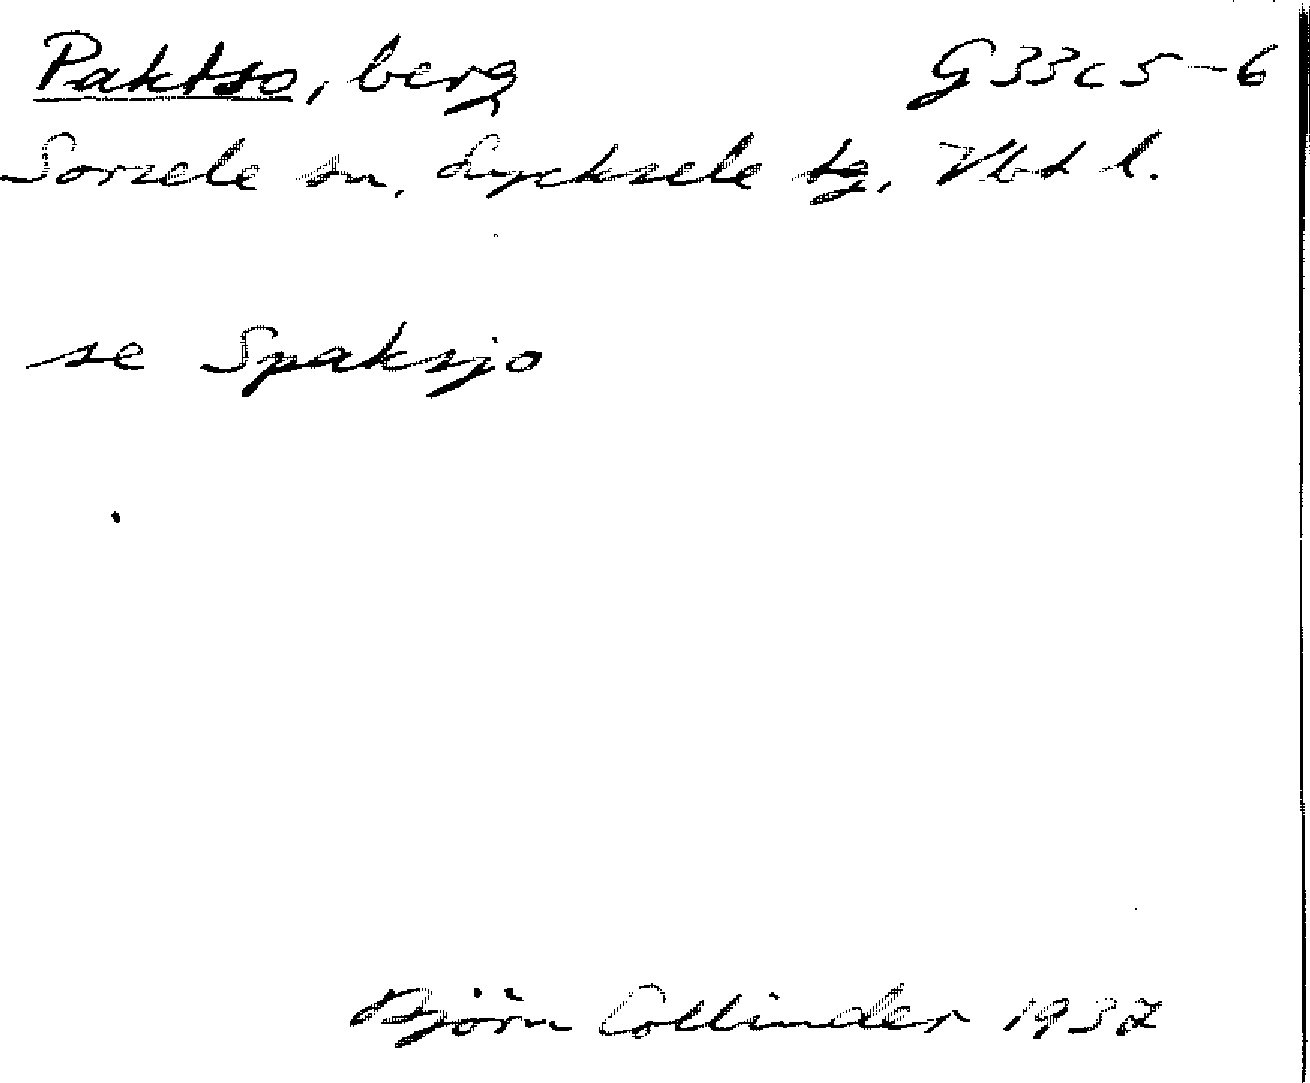 Paktso, berg G33c5-6
Sorsele sn, Lycksele tg, Vbtl.
se Spaksjo
Björn Collinder 1937